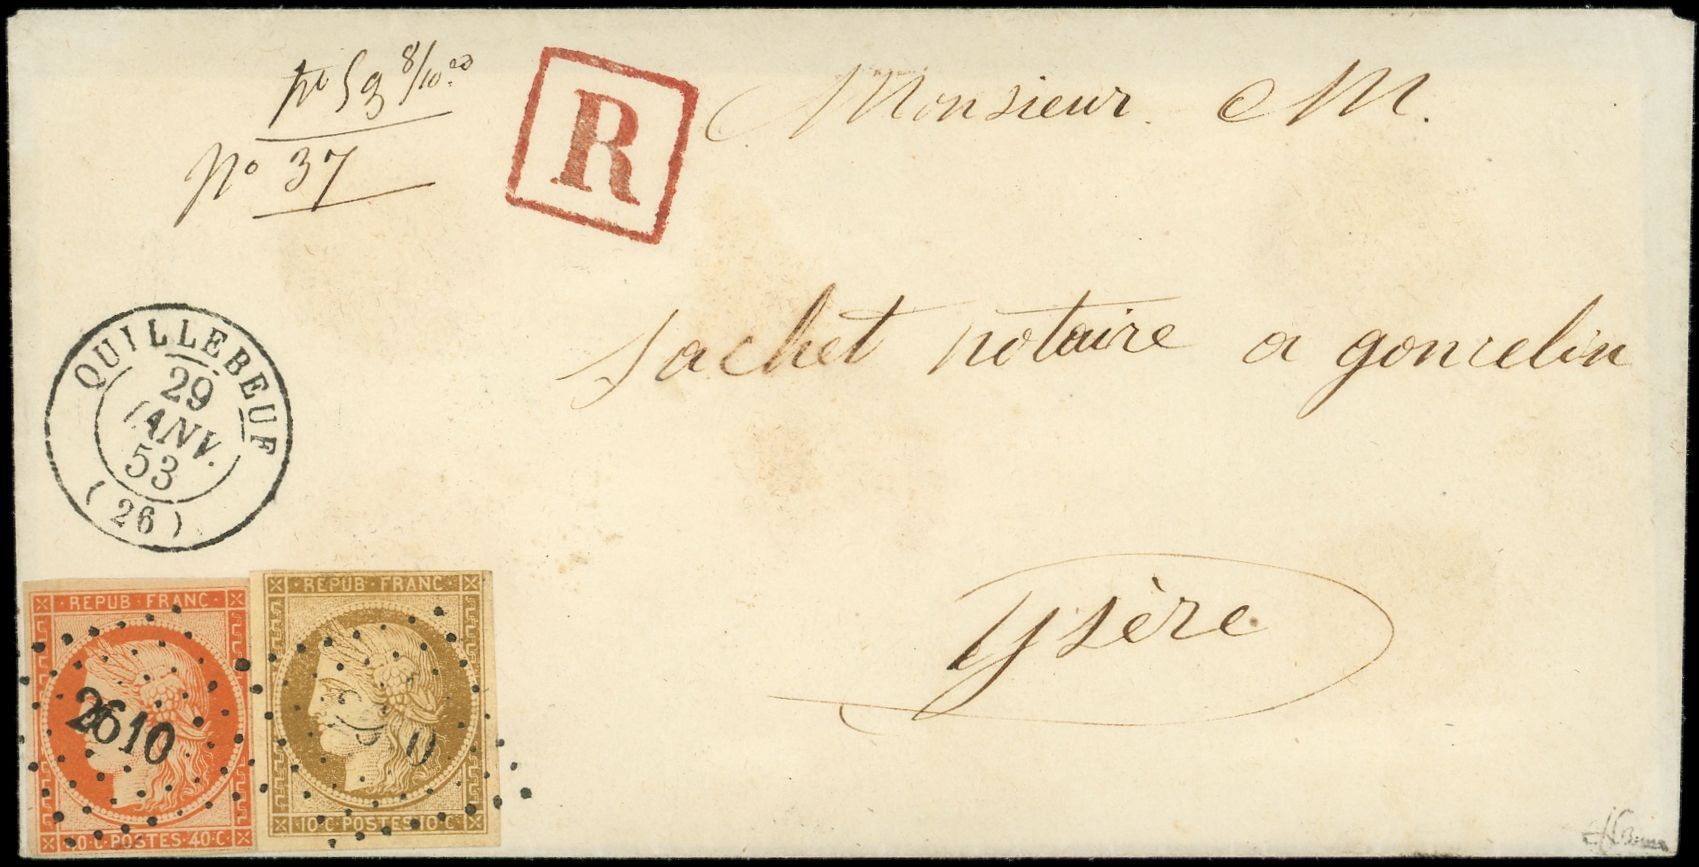 8/10
R
Monsieur M.
no 37
sachet notaire a goncelin
QUILLEBEUF
29
JANV.
53
(26)
REPUB FRANC
REPUB FRANC
Ysère
2610
0
40·C·POSTES·40·C
10·C·POSTES·10·C